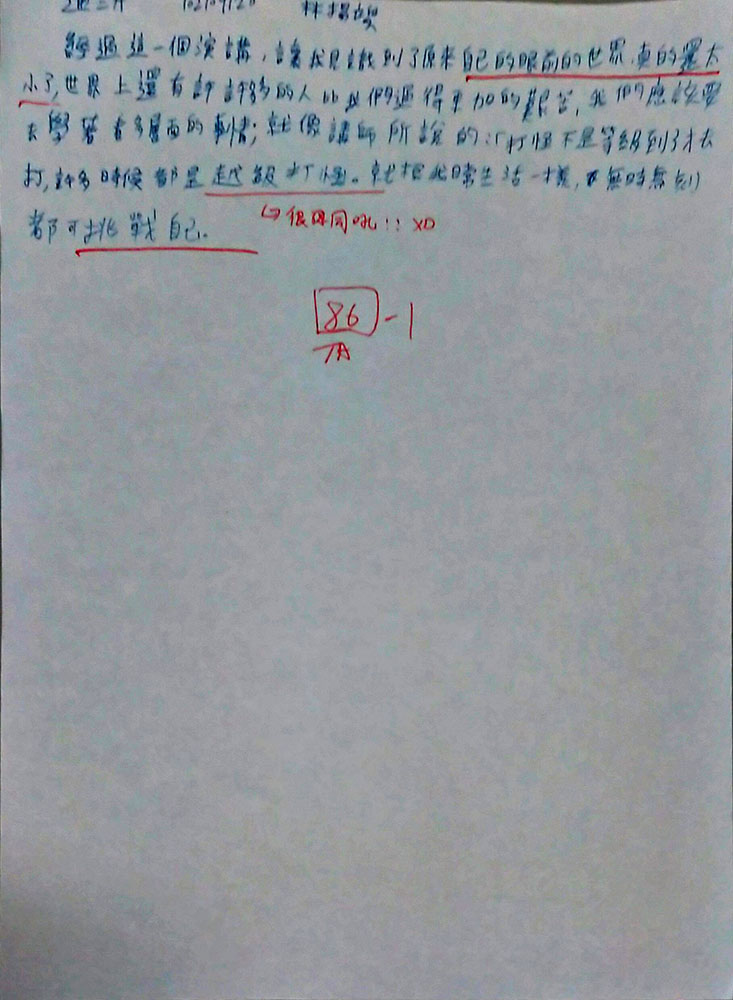 經過這一個演講，讓我見識到了原來自己的眼前的世界，真的還太
小了，世界上還有許許多多的人比我們過得更加的艱苦，我們應該要
去學著看多層面的事情；就像講師所說的："打怪不是等級到了才去
打，許多時候都是越級打怪。就把此時生活一樣，無時無刻
都可挑戰自己。
↳很認同吼!! XD
86 -1
TA